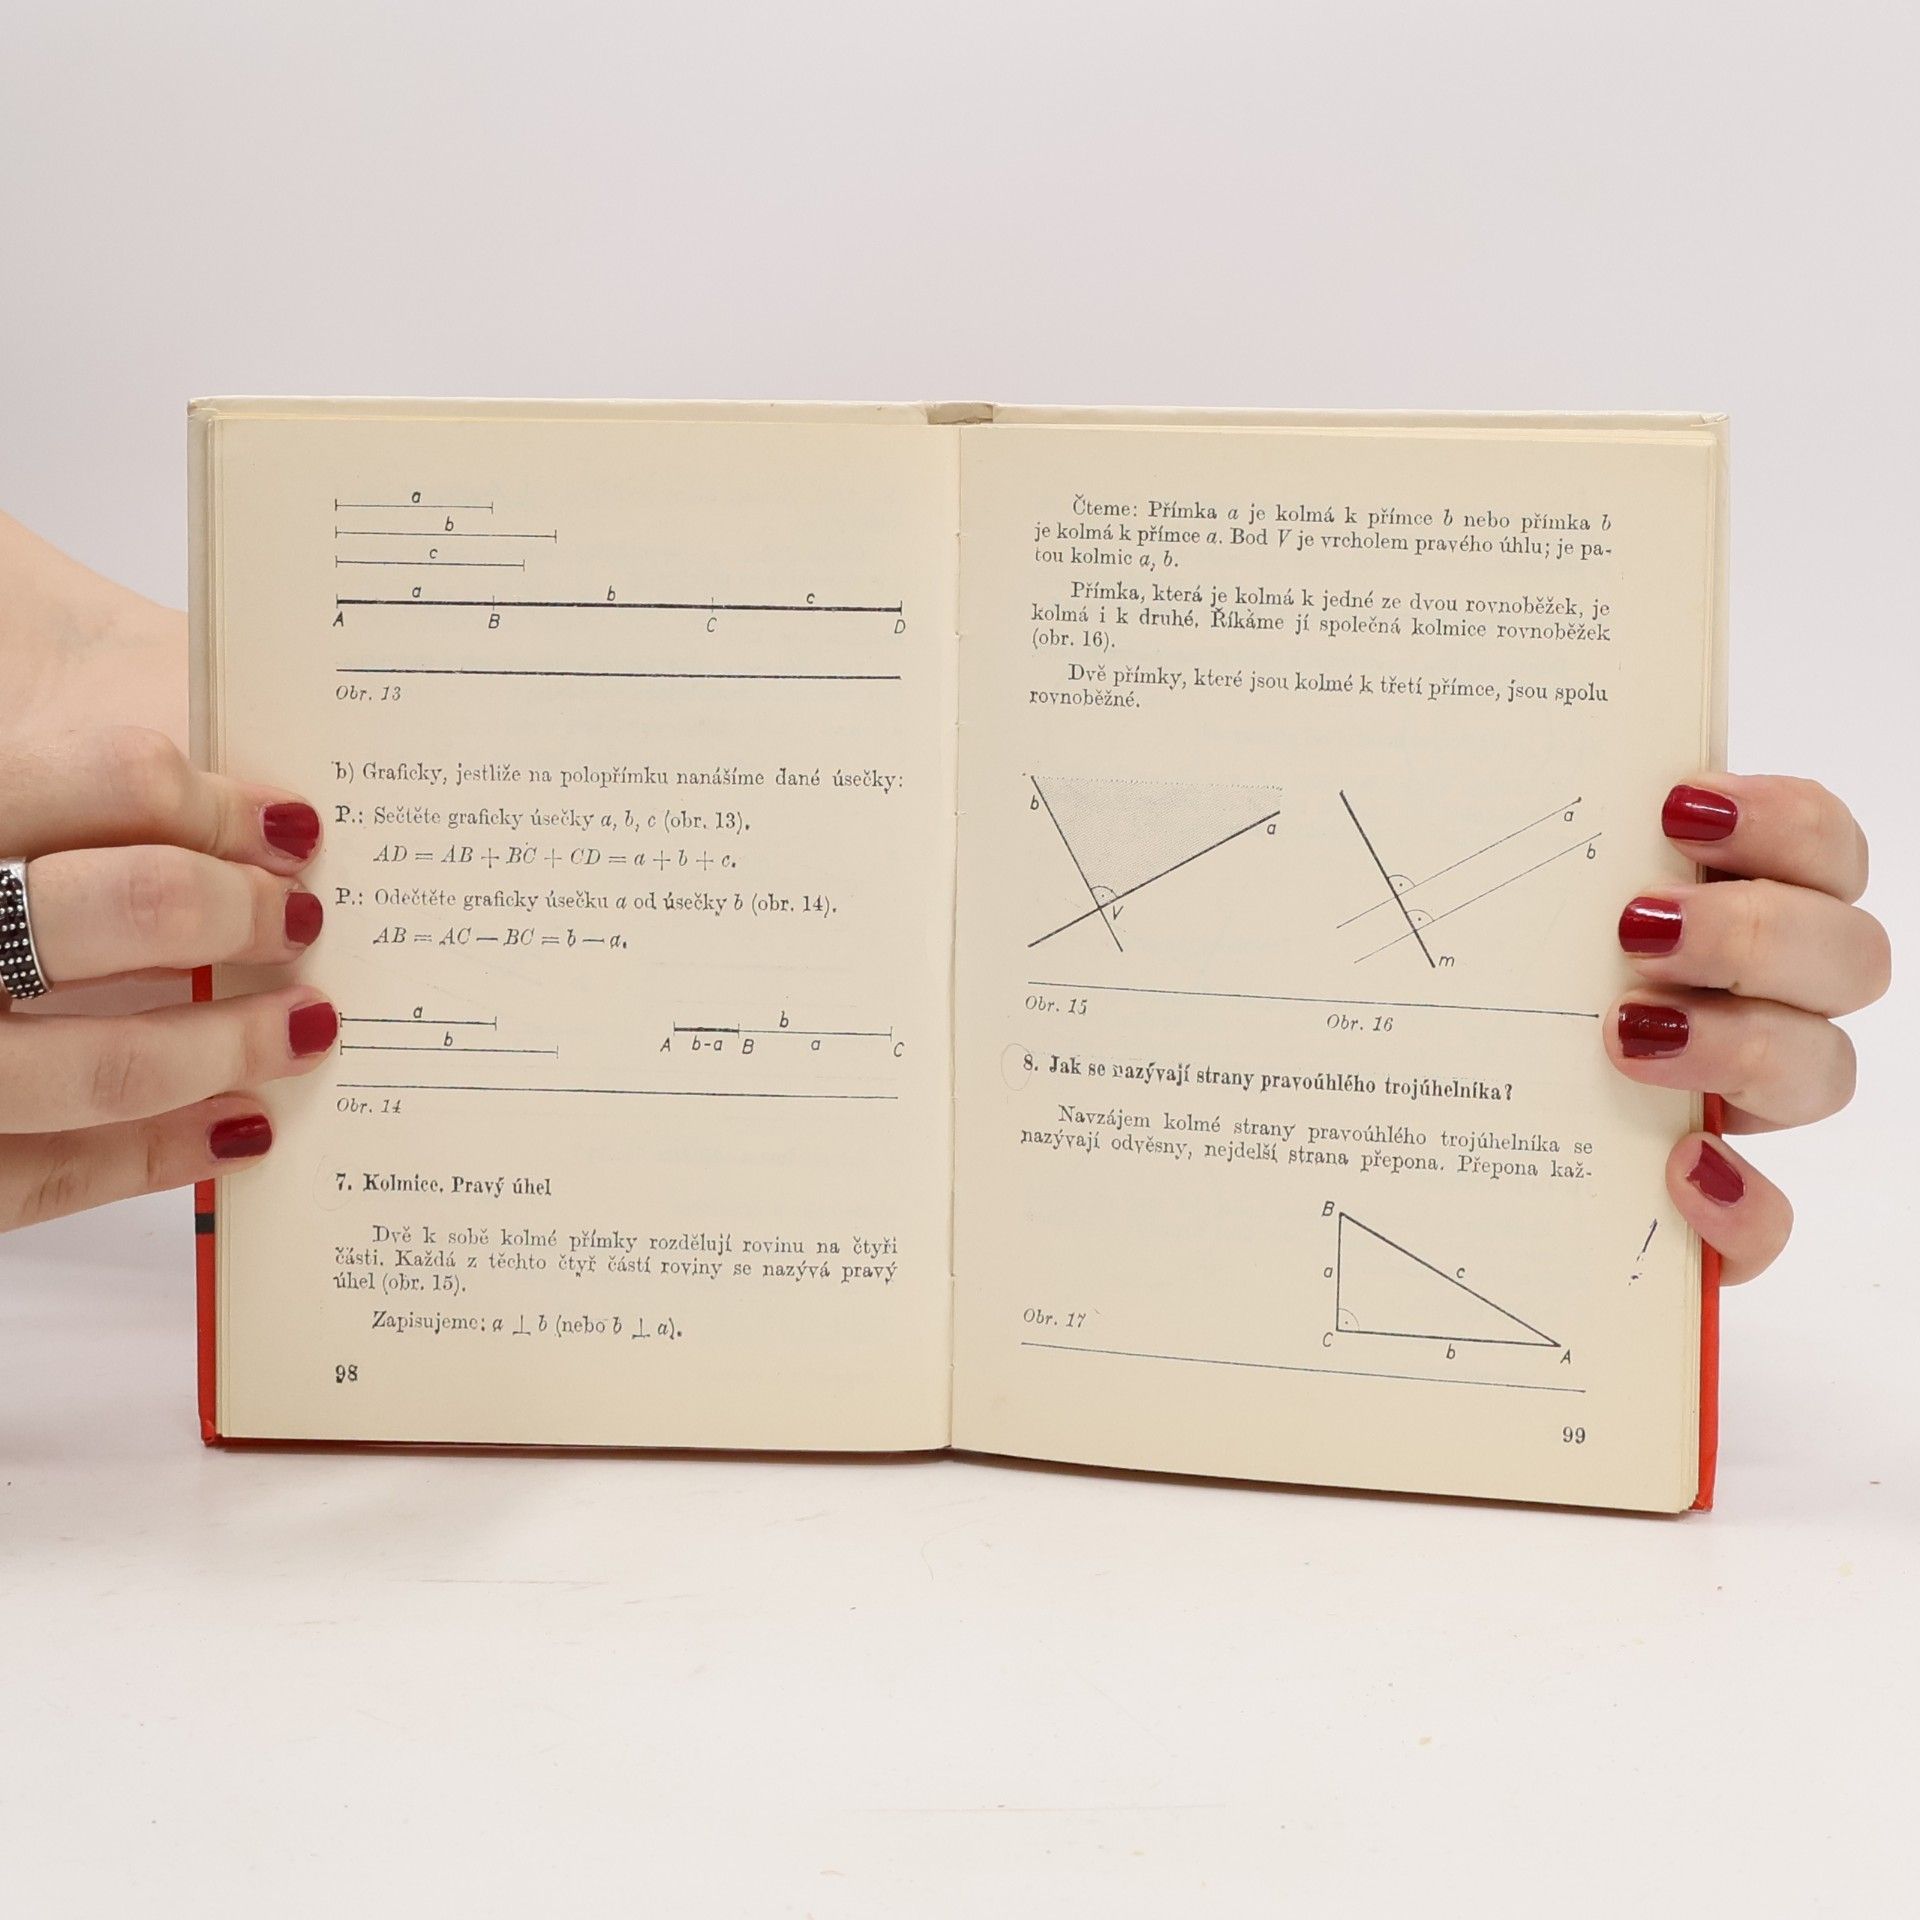 a
b
c
a b c
A B C D
Obr. 13
b) Graficky, jestliže na polopřímku nanášíme dané úsečky:
P.: Sečtěte graficky úsečky a, b, c (obr. 13).
AD = AB + BC + CD = a + b + c.
P.: Odečtěte graficky úsečku a od úsečky b (obr. 14).
AB = AC — BC = b — a.
a
b
b
A b-a B a C
Obr. 14
7. Kolmice. Pravý úhel
Dvě k sobě kolmé přímky rozdělují rovinu na čtyři
části. Každá z těchto čtyř částí roviny se nazývá pravý
úhel (obr. 15).
Zapisujeme: a ⊥ b (nebo b ⊥ a).
98
Čteme: Přímka a je kolmá k přímce b nebo přímka b
je kolmá k přímce a. Bod V je vrcholem pravého úhlu; je pa-
tou kolmic a, b.
Přímka, která je kolmá k jedné ze dvou rovnoběžek, je
kolmá i k druhé. Říkáme jí společná kolmice rovnoběžek
(obr. 16).
Dvě přímky, které jsou kolmé k třetí přímce, jsou spolu
rovnoběžné.
b
a
V
a
b
m
Obr. 15
Obr. 16
8. Jak se nazývají strany pravoúhlého trojúhelníka?
Navzájem kolmé strany pravoúhlého trojúhelníka se
nazývají odvěsny, nejdelší strana přepona. Přepona kaž-
B
a c
C b A
Obr. 17
99